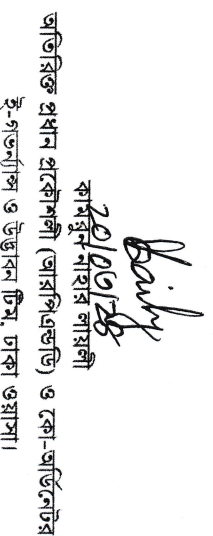 20/07/25
কামরুন নাহার লায়লী
অতিরিক্ত প্রধান প্রকৌশলী (আরপিএন্ডডি) ও কো-অর্ডিনেটর
ই-গভর্ন্যান্স ও উদ্ভাবন টিম, ঢাকা ওয়াসা।